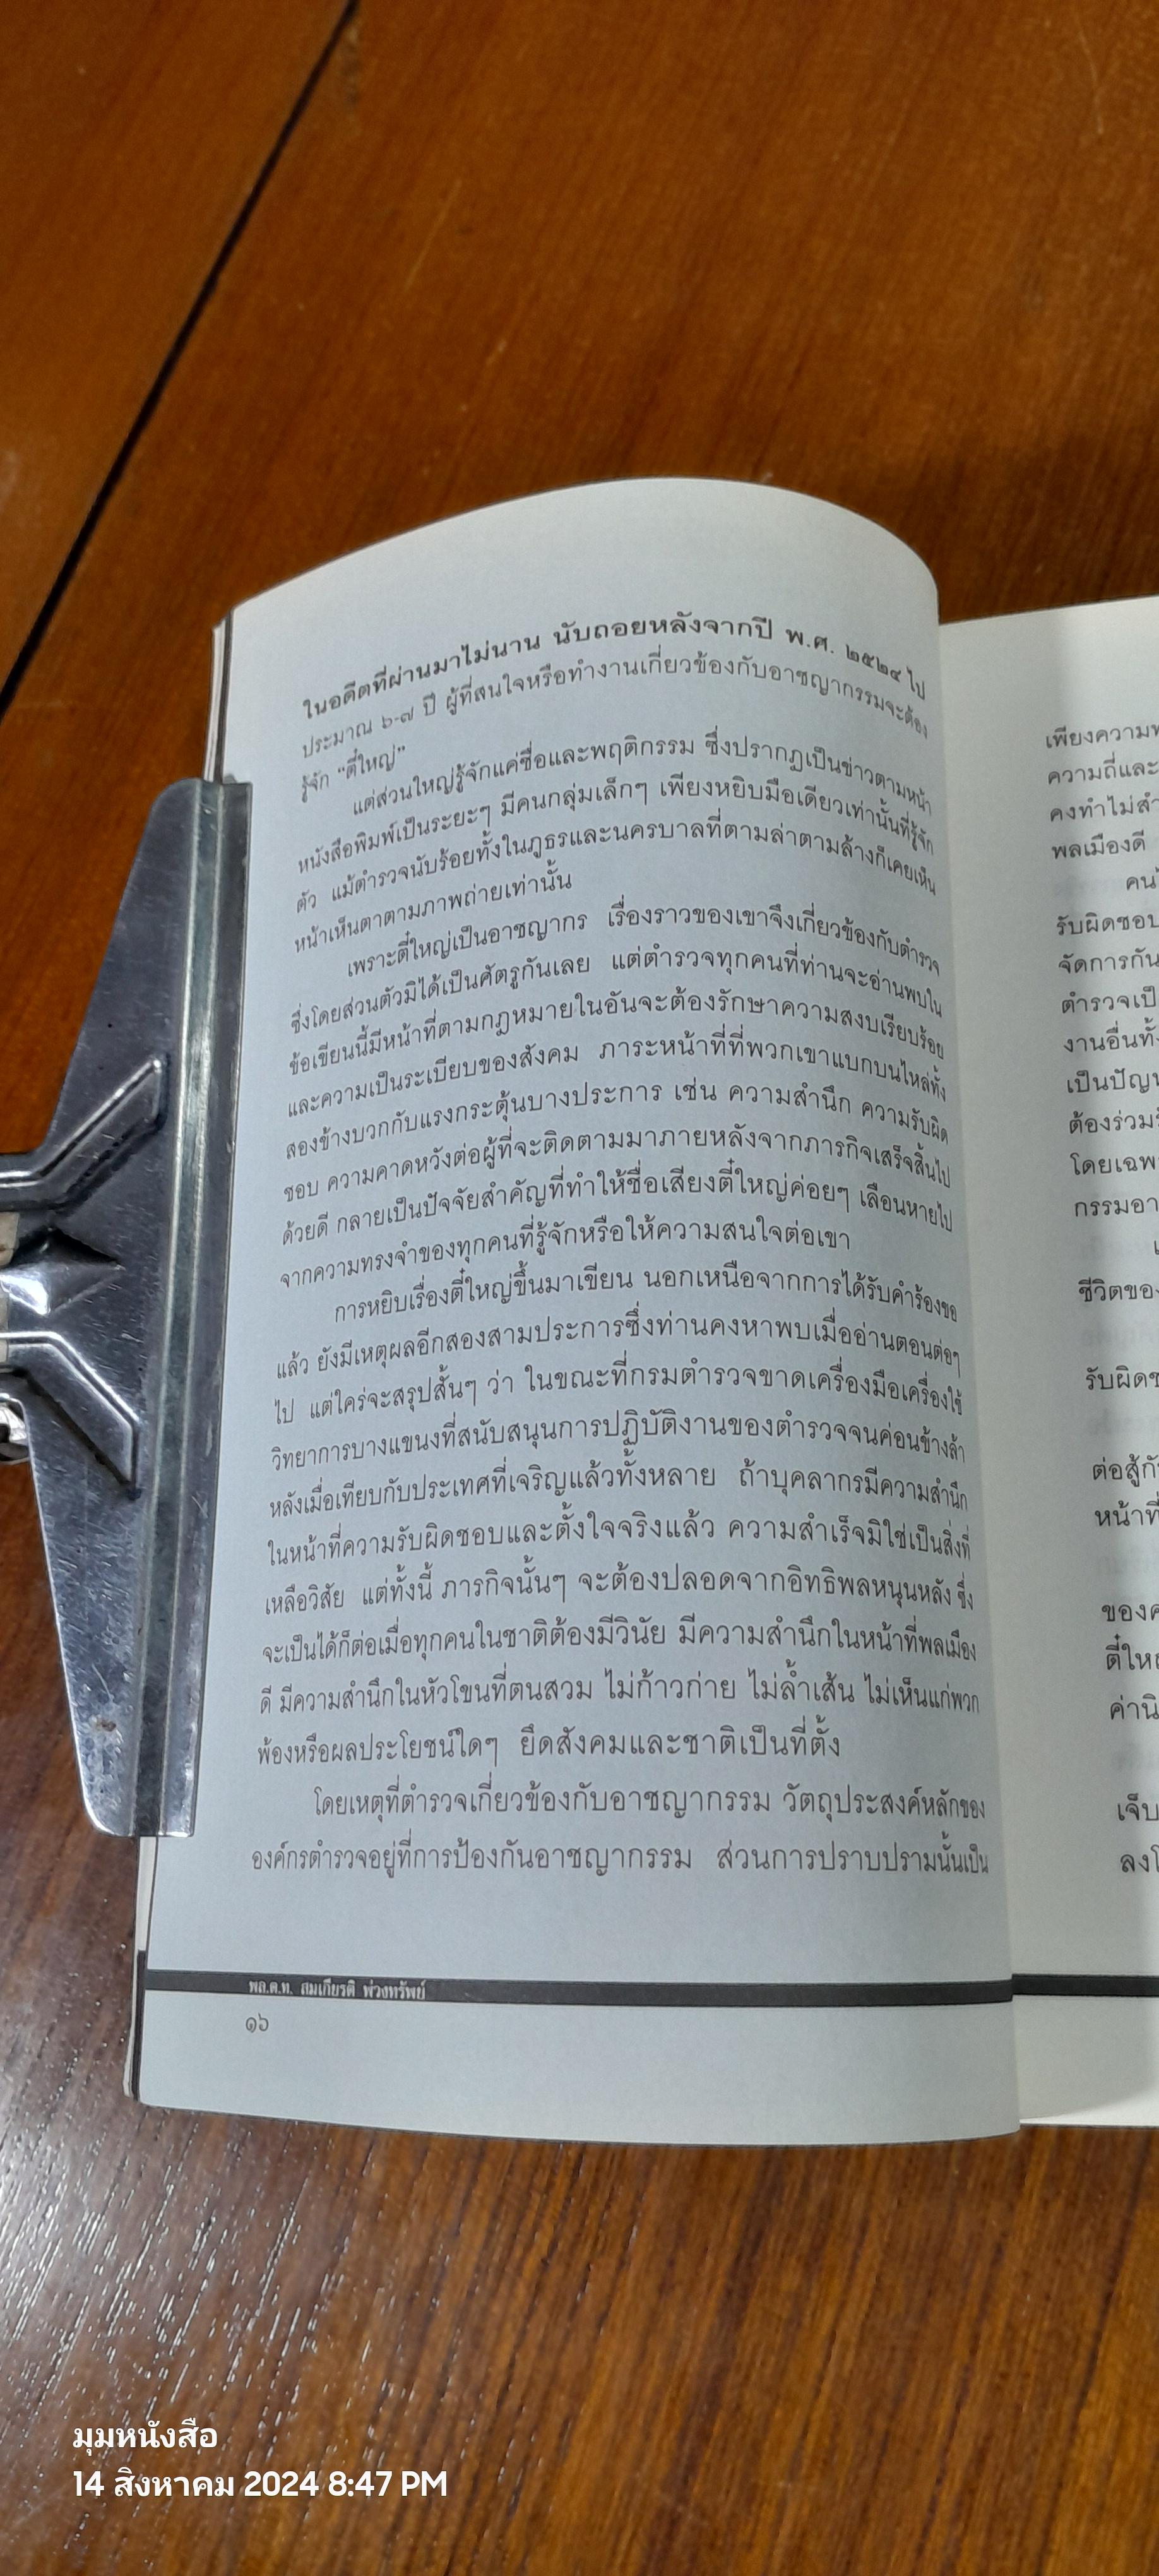 ในอดีตที่ผ่านมาไม่นาน นับถอยหลังจากปี พ.ศ. ๒๕๒๔ ไป
ประมาณ ๖-๗ ปี ผู้ที่สนใจหรือทำงานเกี่ยวข้องกับอาชญากรรมจะต้อง
รู้จัก “ตี๋ใหญ่”
แต่ส่วนใหญ่รู้จักแค่ชื่อและพฤติกรรม ซึ่งปรากฏเป็นข่าวตามหน้า
หนังสือพิมพ์เป็นระยะๆ มีคนกลุ่มเล็กๆ เพียงหยิบมือเดียวเท่านั้นที่รู้จัก
ตัว แม้ตำรวจนับร้อยทั้งในภูธรและนครบาลที่ตามล่าตามล้างก็เคยเห็น
หน้าเห็นตาตามภาพถ่ายเท่านั้น
เพราะตี๋ใหญ่เป็นอาชญากร เรื่องราวของเขาจึงเกี่ยวข้องกับตำรวจ
ซึ่งโดยส่วนตัวมิได้เป็นศัตรูกันเลย แต่ตำรวจทุกคนที่ท่านจะอ่านพบใน
ข้อเขียนนี้มีหน้าที่ตามกฎหมายในอันจะต้องรักษาความสงบเรียบร้อย
และความเป็นระเบียบของสังคม ภาระหน้าที่ที่พวกเขาแบกบนไหล่ทั้ง
สองข้างบวกกับแรงกระตุ้นบางประการ เช่น ความสำนึก ความรับผิด
ชอบ ความคาดหวังต่อผู้ที่จะติดตามมาภายหลังจากภารกิจเสร็จสิ้นไป
ด้วยดี กลายเป็นปัจจัยสำคัญที่ทำให้ชื่อเสียงตี๋ใหญ่ค่อยๆ เลือนหายไป
จากความทรงจำของทุกคนที่รู้จักหรือให้ความสนใจต่อเขา
การหยิบเรื่องตี๋ใหญ่ขึ้นมาเขียน นอกเหนือจากการได้รับคำร้องขอ
แล้ว ยังมีเหตุผลอีกสองสามประการซึ่งท่านคงหาพบเมื่ออ่านตอนต่อๆ
ไป แต่ใคร่จะสรุปสั้นๆ ว่า ในขณะที่กรมตำรวจขาดเครื่องมือเครื่องใช้
วิทยาการบางแขนงที่สนับสนุนการปฏิบัติงานของตำรวจจนค่อนข้างล้า
หลังเมื่อเทียบกับประเทศที่เจริญแล้วทั้งหลาย ถ้าบุคลากรมีความสำนึก
ในหน้าที่ความรับผิดชอบและตั้งใจจริงแล้ว ความสำเร็จมิใช่เป็นสิ่งที่
เหลือวิสัย แต่ทั้งนี้ ภารกิจนั้นๆ จะต้องปลอดจากอิทธิพลหนุนหลัง ซึ่ง
จะเป็นได้ก็ต่อเมื่อทุกคนในชาติต้องมีวินัย มีความสำนึกในหน้าที่พลเมือง
ดี มีความสำนึกในหัวโขนที่ตนสวม ไม่ก้าวก่าย ไม่ล้ำเส้น ไม่เห็นแก่พวก
พ้องหรือผลประโยชน์ใดๆ ยึดสังคมและชาติเป็นที่ตั้ง
โดยเหตุที่ตำรวจเกี่ยวข้องกับอาชญากรรม วัตถุประสงค์หลักของ
องค์กรตำรวจอยู่ที่การป้องกันอาชญากรรม ส่วนการปราบปรามนั้นเป็น
พล.ต.ท. สมเกียรติ พ่วงทรัพย์
๑๖
เพียงความ
ความถี่และ
คงทำไม่สำ
พลเมืองดี
คน
รับผิดชอบ
จัดการกัน
ตำรวจเป็
งานอื่นทั้
เป็นปัญ
ต้องร่วม
โดยเฉพ
กรรมอา
ชีวิตของ
รับผิดช
ต่อสู้กั
หน้าที่
ของ
ตี๋ให
ค่านิ
เจ็บ
ลง
มุมหนังสือ
14 สิงหาคม 2024 8:47 PM